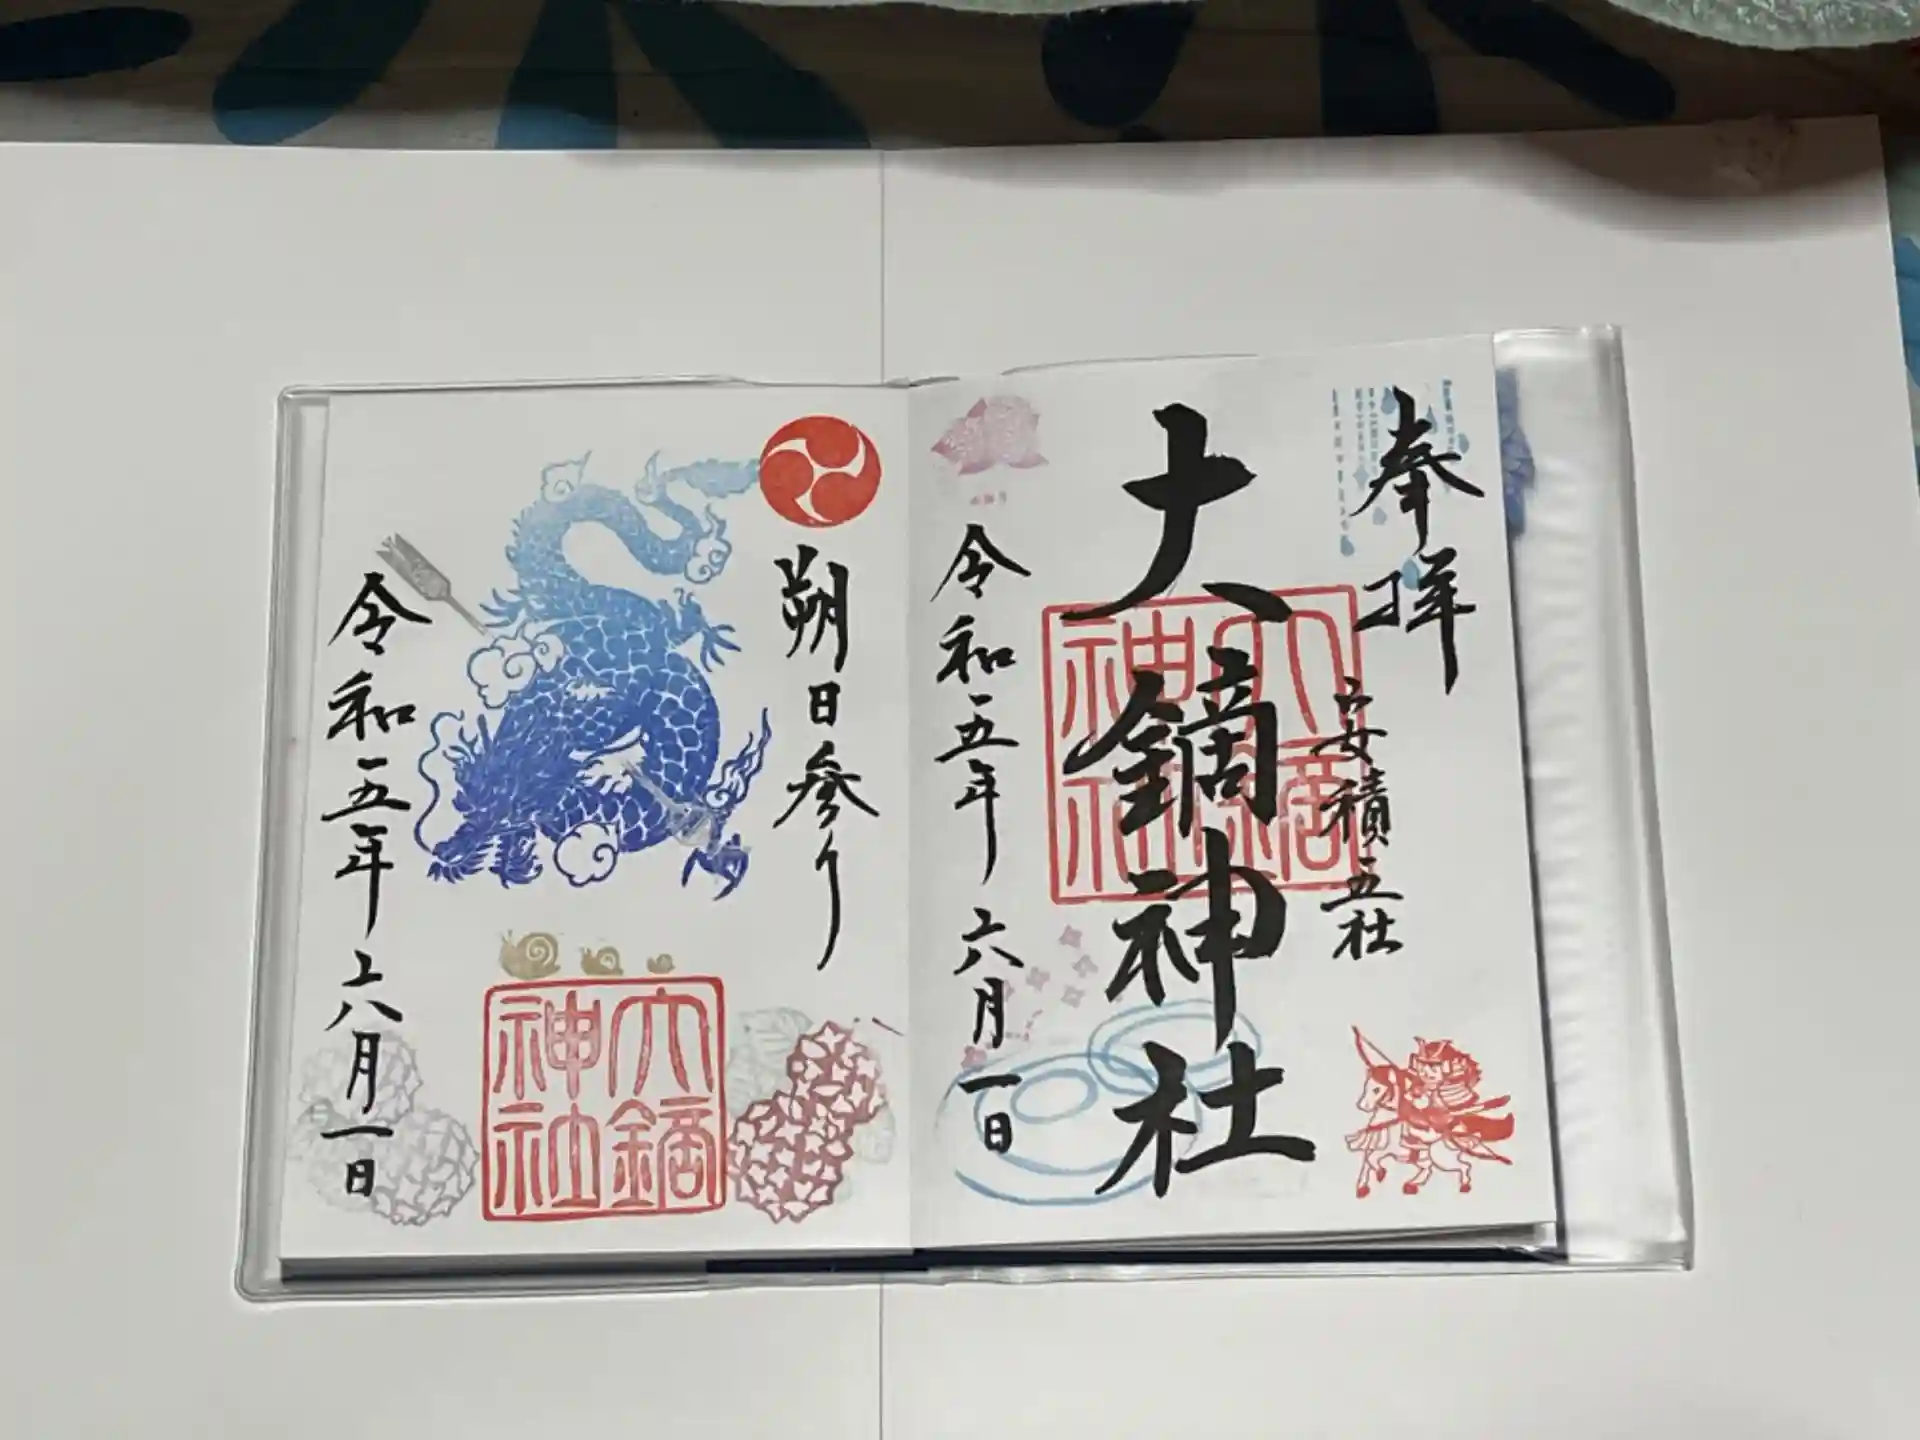 奉拝
安積五社
大鏑神社
大鏑神社
令和五年 六月一日
朔日参り
大鏑神社
令和五年六月一日